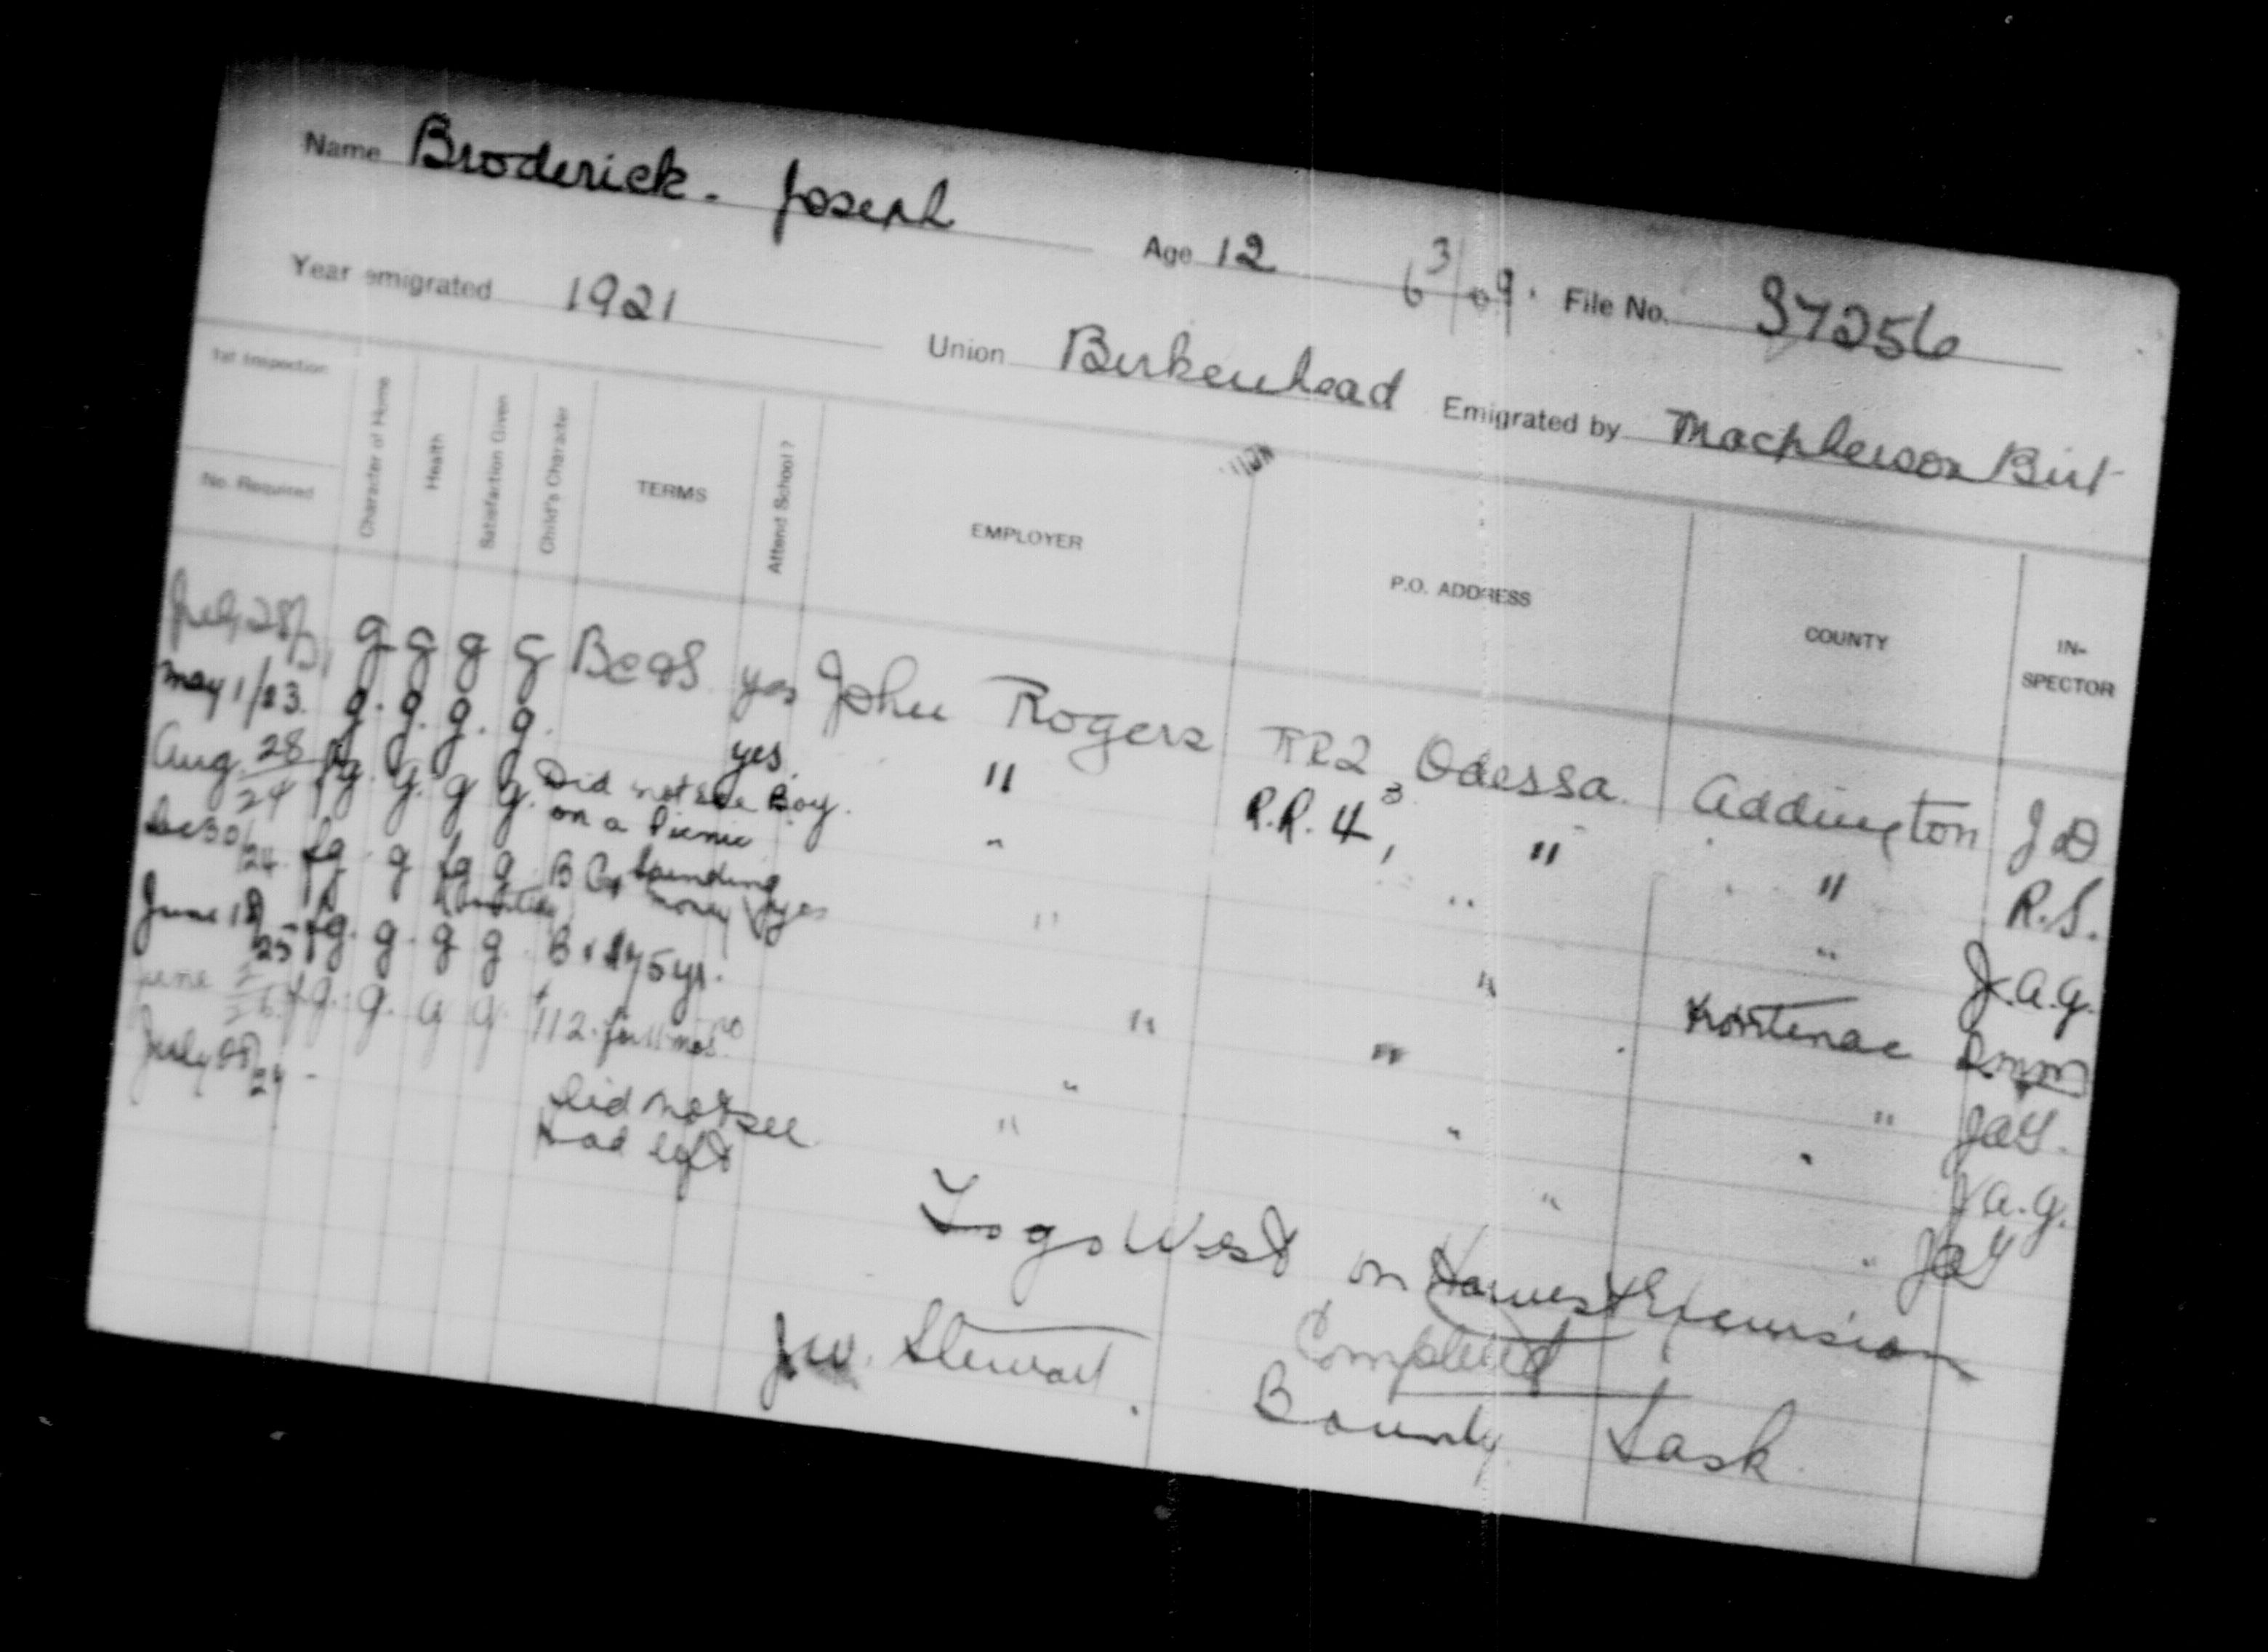 Name Broderick - Joseph Age 12 6 3/09. File No. 37256
Year emigrated 1921 Union Birkenhead Emigrated by Macpherson Birt
1st Inspection
No. Required
Character of Home Health Satisfaction Given Child's Character TERMS Attend School? EMPLOYER P.O. ADDRESS COUNTY IN-SPECTOR
July 28/ g g g g B C & S yes John Rogers RR2, Odessa Addington J D
May 1/23. g. g. g. g. yes. " R.R. 4, 3 " " R.S.
Aug. 28/24 fg. g. g g. Did not see Boy. on a Picnic " " " J.a.g.
Dec 30/24 fg. g fg g. B C & Spending money yes " " Frontenac
June 18/25 fg. g. g g B & $75 yr. " " " JaG.
June fg. g. g g. $112. for 11 mos. no " " " J a.g.
July - Did not see Had left " " " JaG
To go West on Harvest Excursion
Completed
J.W. Stewart. Bounty Sask.